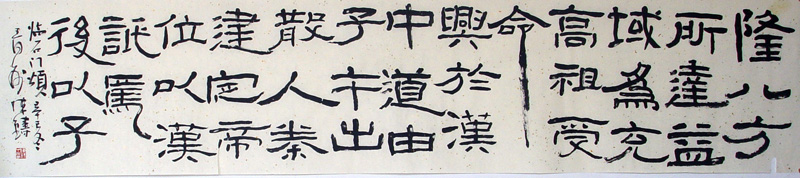 隆八方
所達益
域為充
高祖受
命
興於漢
中道由
子午出
散入秦
建定帝
位以漢
詆焉
後以子
臨石门頌 辛巳冬